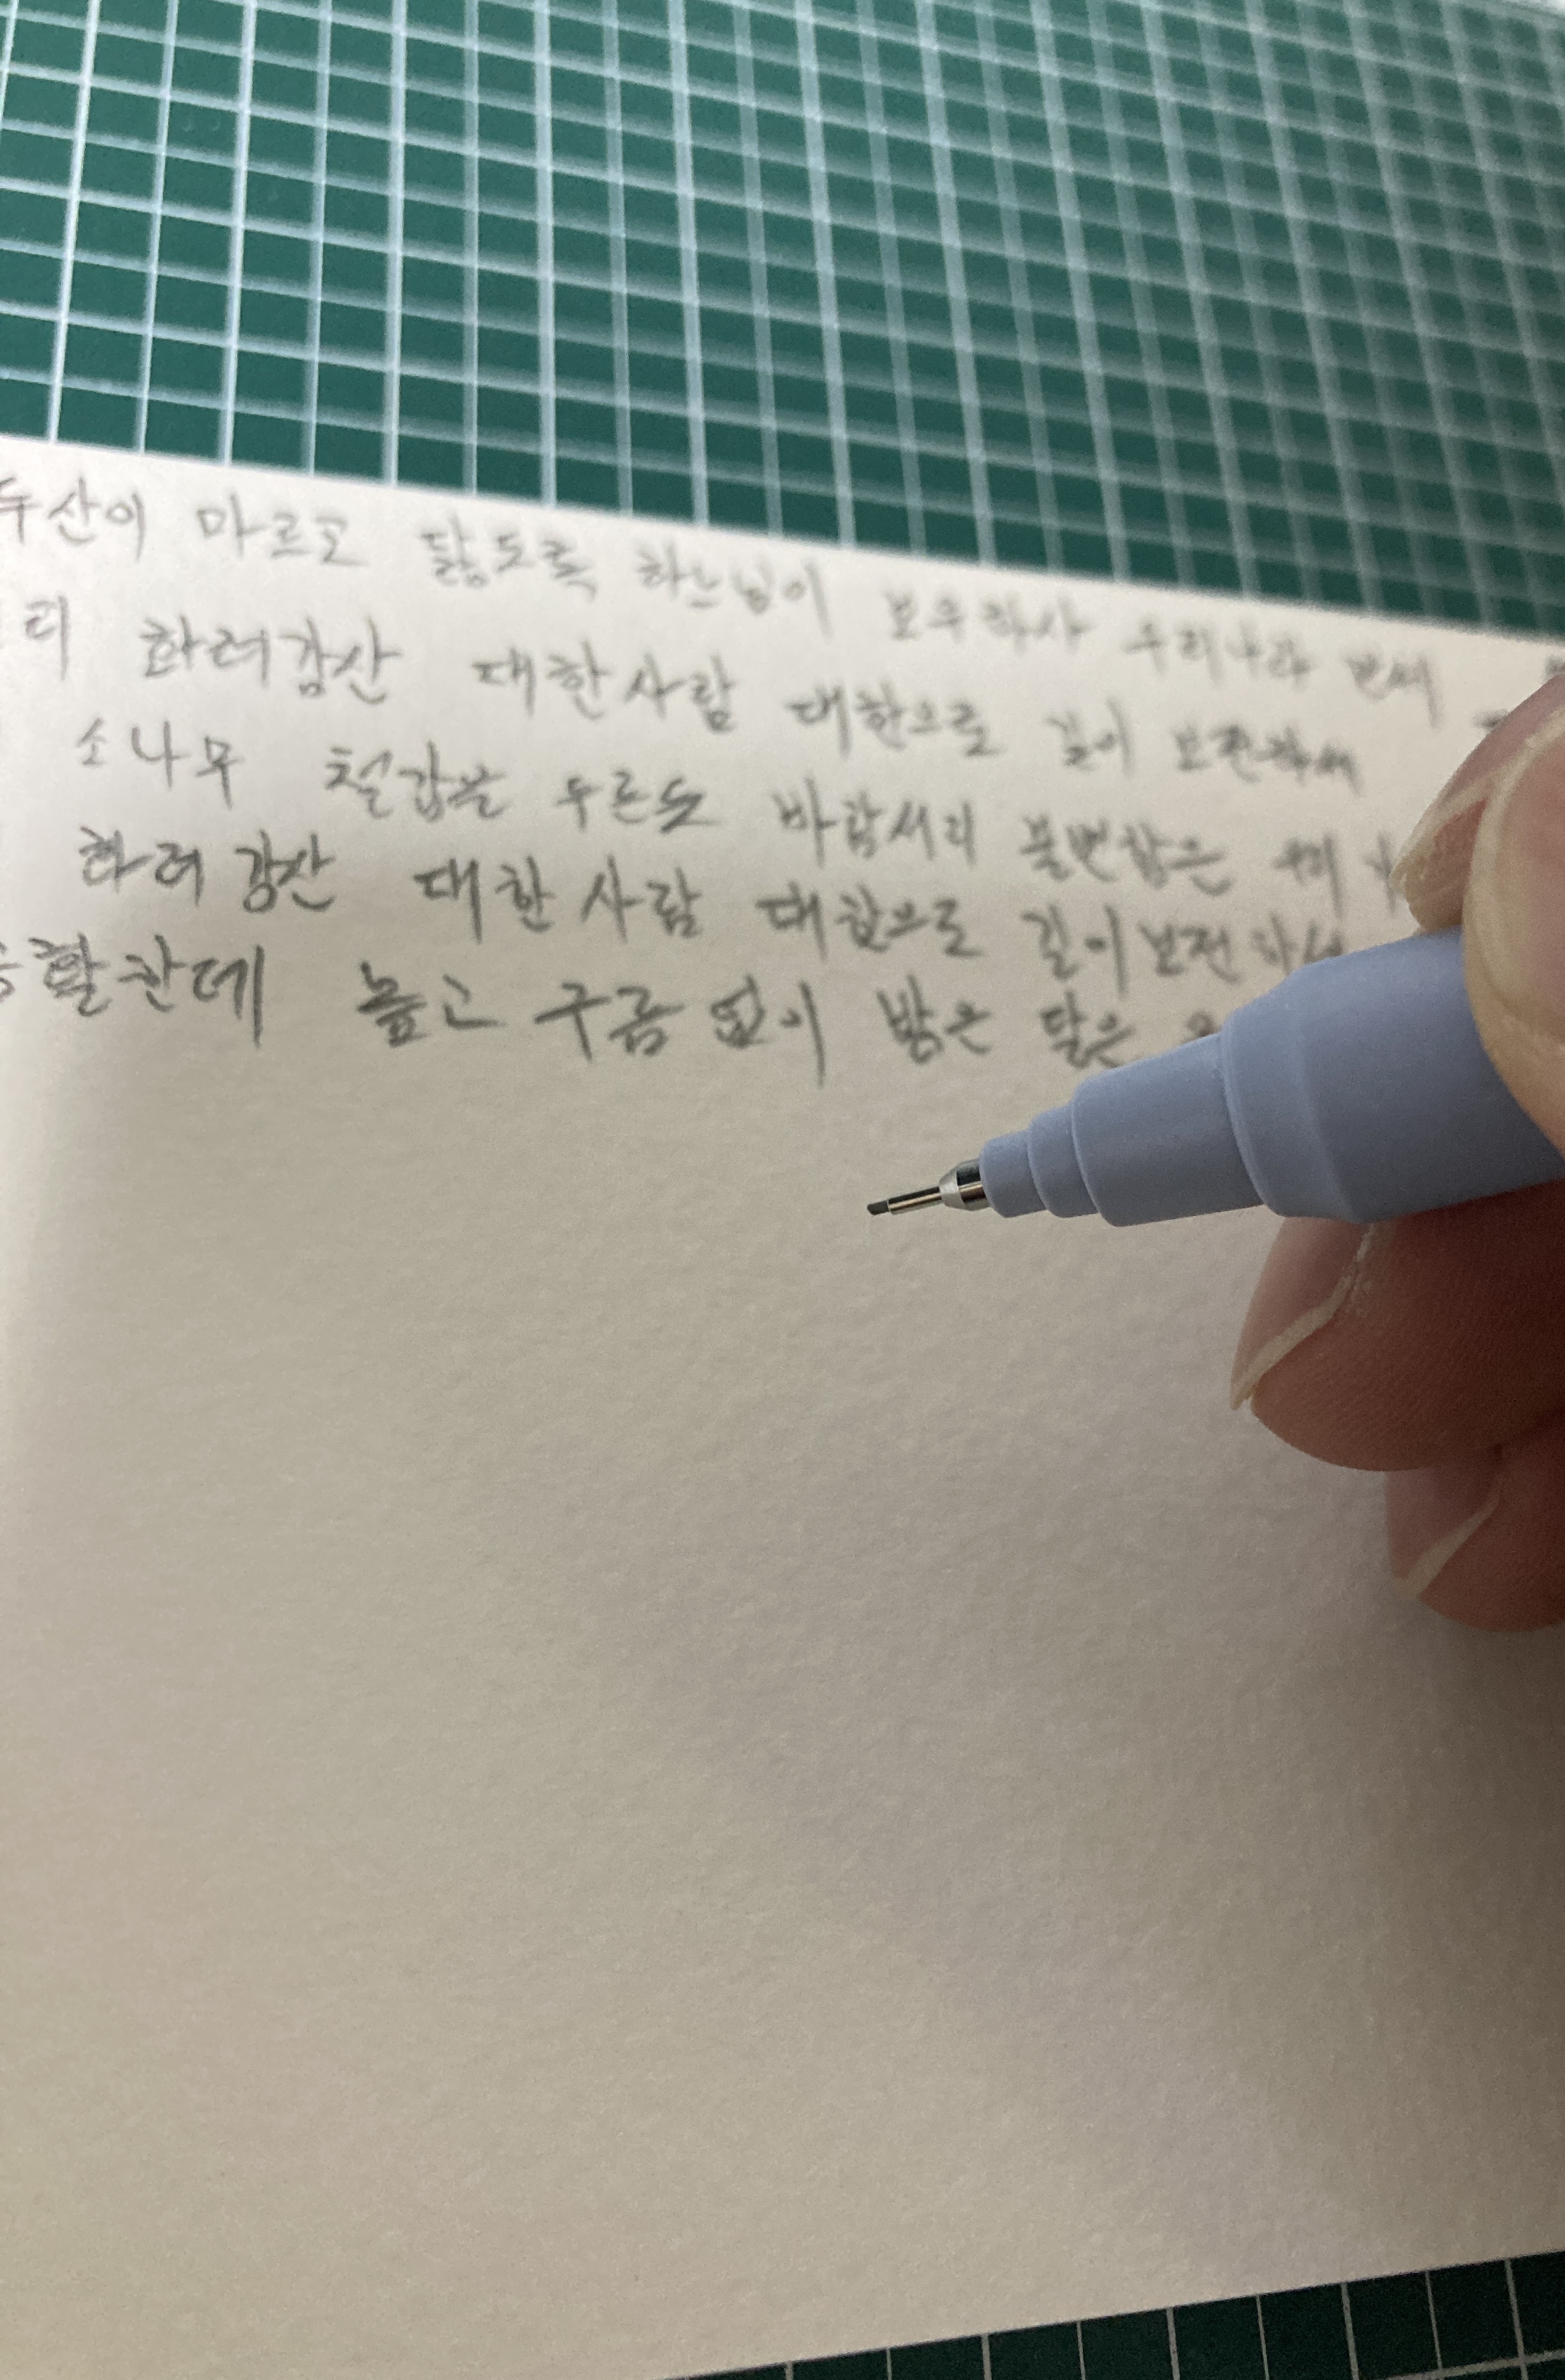 두산이 마르고 닳도록 하느님이 보우하사 우리나라 만세
리 화려강산 대한사람 대한으로 길이 보전하세
소나무 철갑을 두른듯 바람서리 불변함은 우리
화려강산 대한사람 대한으로 길이보전하세
활한데 높고 구름 없이 밝은 달은